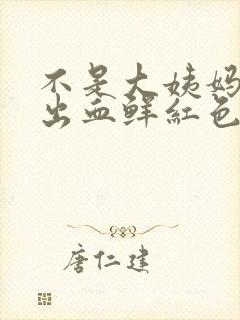 不是大姨妈
出血鲜红色
唐仁建